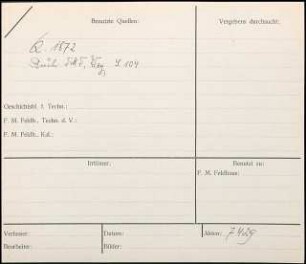 Benutzte Quellen:
Vergebens durchsucht:
1872
S 104
Geschichtsbl. f. Techn.:
F. M. Feldh., Techn. d. V.:
F. M. Feldh., Kal.:
Irrtümer:
Benutzt zu:
F. M. Feldhaus:
Verfasser:
Datum:
Akten: 7429
Bearbeiter:
Bilder: